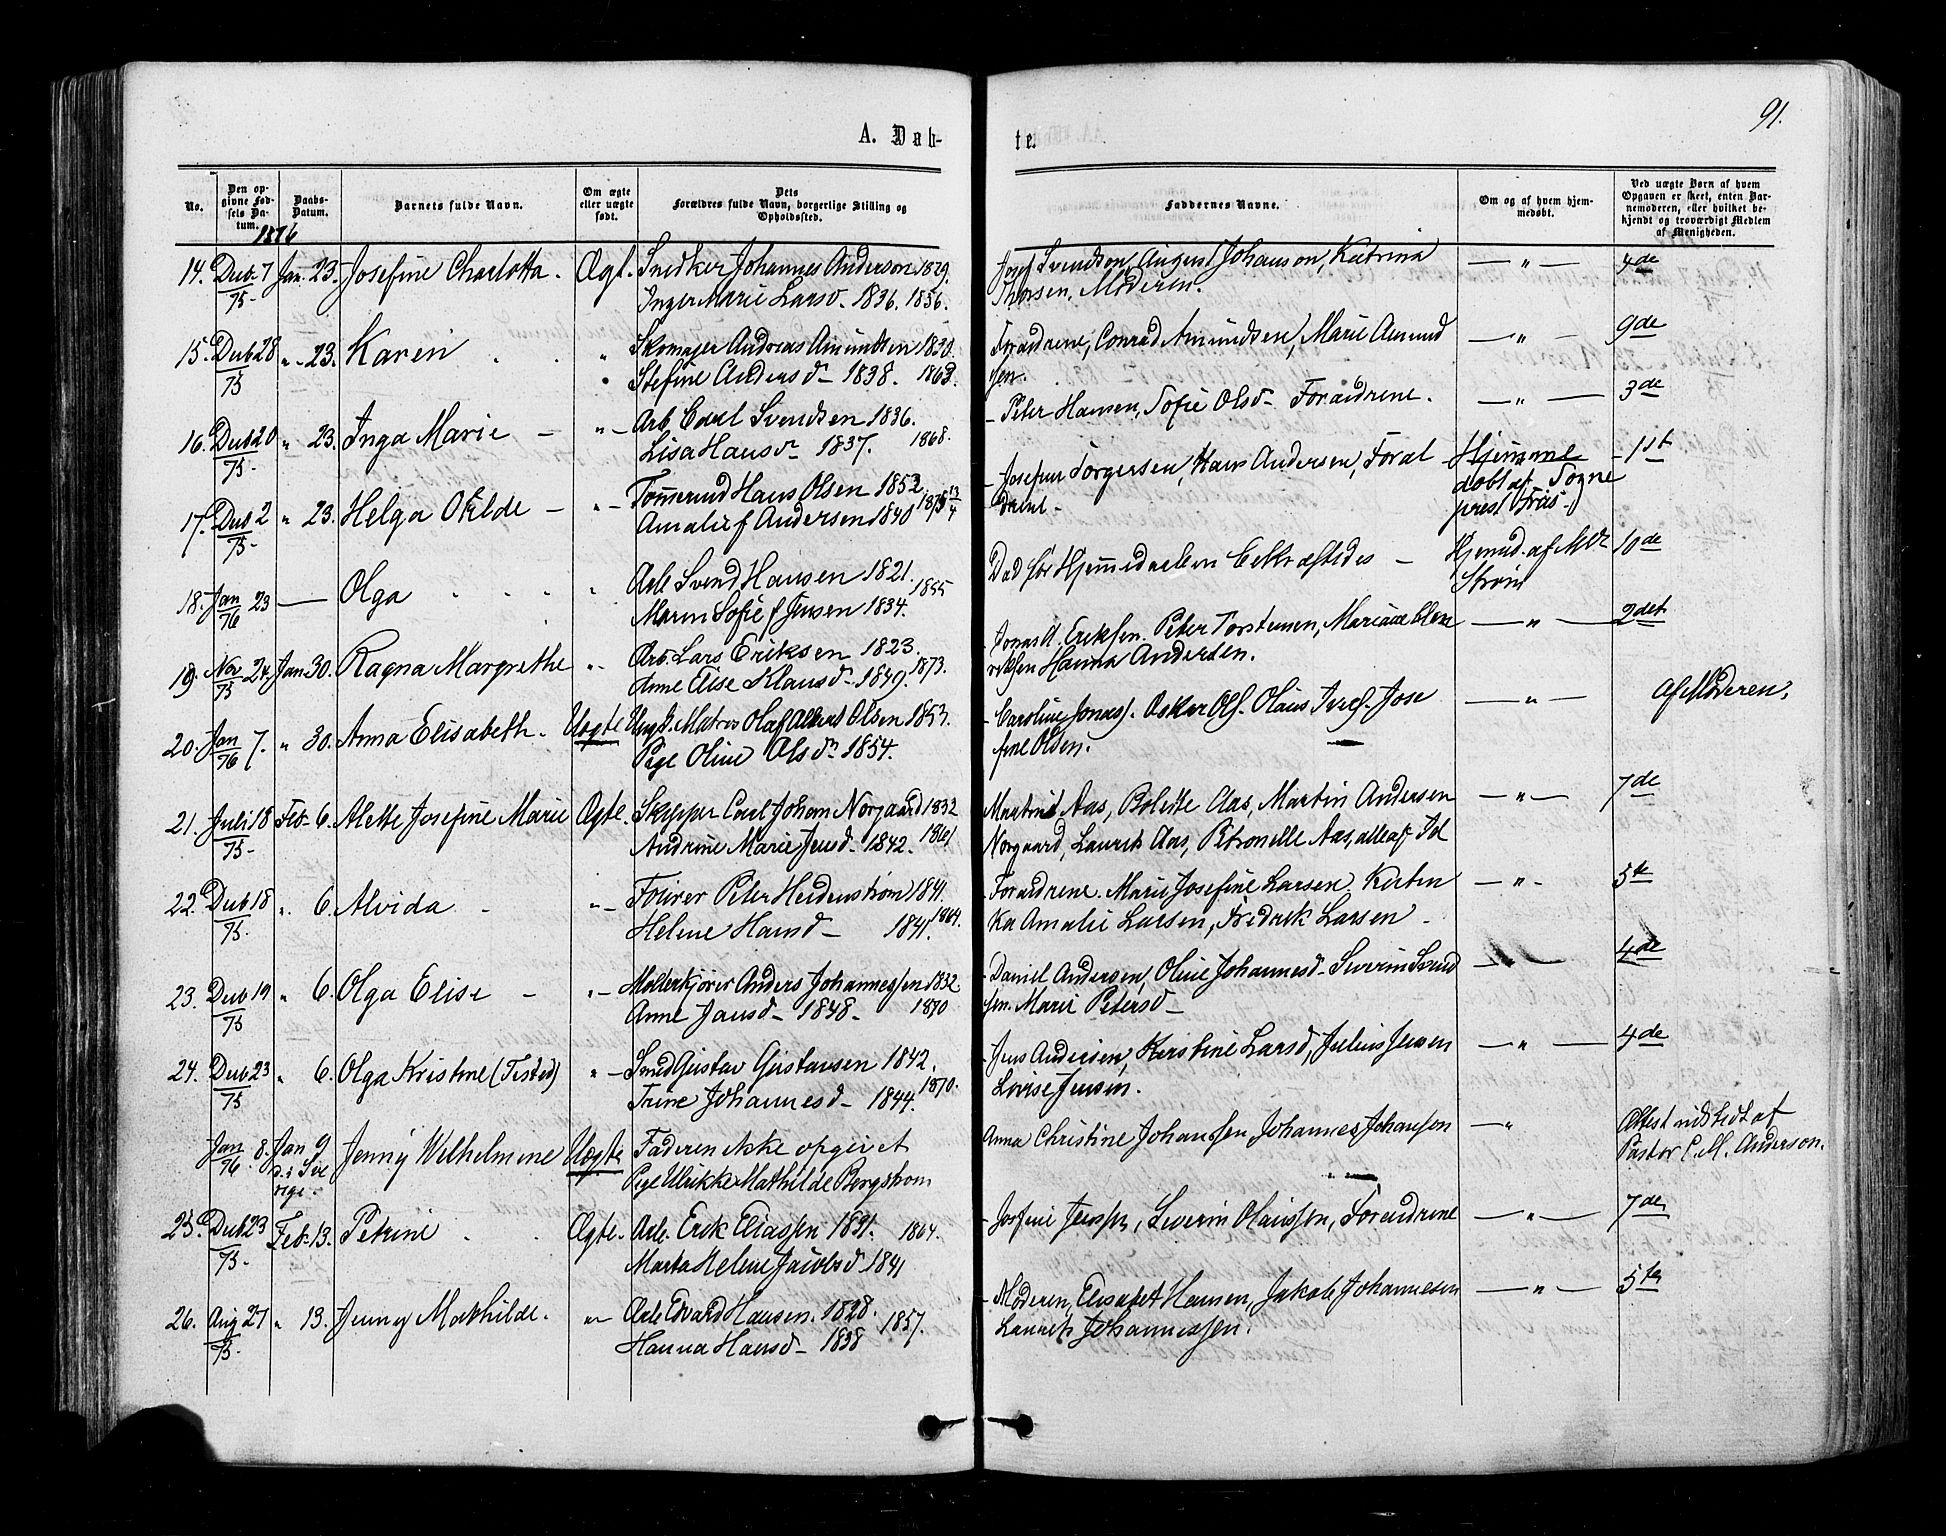 A. Døb-
te.
91.
No.
Den op-
givne Fød-
sels Da-
tum.
Daabs-
Datum.
Barnets fulde Navn.
Om ægte
eller uægte
født.
Dets
Forældres fulde Navn, borgerlige Stilling og
Opholdssted.
Faddernes Navne.
Om og af hvem hjem-
medøbt.
Ved uægte Børn af hvem
Opgaven er skeet, enten Bar-
nemoderen, eller hvilket be-
kjendt og troværdigt Medlem
af Menigheden.
1876
14. Decb 7 Jan. 23. Josefine Charlotta. Ægt. Snedker Johannes Anderson 1829. Josef Svendson, August Johanson, Katrina — " — 4de
75. Inger Marie Larsd. 1836. 1856. Thorsen, Moderen.
15. Decb 28 " 23. Karen " Skomager Andreas Amundsen 1830. Forældrene, Conrad Amundsen, Marie Amund — " — 9de
75 Stefine Andersd 1838. 1863. sen.
16. Decb 20 " 23. Inga Marie — " — Arb. Carl Svendsen 1836. Peter Hansen, Sofie Olsd — Forældrene. — " — 3de
75. Lisa Hansd 1837. 1868.
17. Decb 2 " 23. Helga Otilde — " — Tømmermd Hans Olsen 1852. 1875 13/4 Josefine Torgersen, Hans Andersen, Foræl Hjemme 1st
75. Amalie f Andersen 1840 drene. døbt af Sogne
prest Friis.
18. Jan 23 — Olga " Arb. Svend Hansen 1821. Død før Hjemmedaaben bekræftedes — Hjemd. af Mdr 10de
76 Maren Sofie f Jensen 1834. 1855 Strøm
19. Nov 24. Jan 30. Ragna Margrethe " Arb. Lars Eriksen 1823. Jonas A. Eriksen. Peter Torstensen, — " — 2det
75 Anne Elise Klausd 1849. 1873. Hanna Andersen.
20. Jan 7. " 30. Anna Elisabeth. Uægte Ungk. Matros Olaf Albert Olsen 1853. Caroline Jonass. Oskar Ols. Olaus Josef. Jose — " — af Moderen.
76 Pige Oline Olsd 1854. fine Olsen.
21. Juli 18 Feb. 6. Alette Josefine Marie Ægte. Skipper Carl Johan Norgaard 1832 Aas, Bolette Aas, Martin Andersen — " — 7de
75. Andrine Marie Jensd 1842. 1861 Norgaard, Laurits Aas, Petronelle Aas, alle af Id
22. Decb 18 " 6. Alvida " — Peter Heidenstrøm 1841. Forældrene. Marie Josefine Larsen — " — 5te
75. Helene Hansd 1841. 1864. Amalie Larsen, Fredrik Larsen
23. Decb 19 " 6. Olga Elise — " — Møllerkjører Anders Johannessen 1832. Daniel Andersen, Oline Johannesd — Severin Svend — 4de
75 Anne Jansd 1848 — 1870 sen. Marie Petersd —
24. Decb 23 " 6. Olga Kristine (Tisted) " — Smed Gustav Gustavsen 1842. Jens Andersen, Kirstine Larsd, Julius Jensen — " — 4de
75 Trine Johannesd 1844. 1870. Lovise Jensen.
Jan 8. Jan 9 Jenny Wilhelmine Uægte Faderen ikke opgivet Anna Christine Johanssen Johannes Johansen — " Attest af
76 i Sve Pige Ulrikke Mathilde Bergstrøm Pastor C. M. Anderson.
rige.
25. Decb 23 Feb. 13. Petrine Ægte. Arb. Erik Eliassen 1831. 1864. Josefine Jenssen, Severin Olaussen, Forældrene — " — 7de
75. Marta Helene Jacobsd 1841
26. Aug 27 " 13. Jenny Mathilde. " Arb. Edvard Hansen. 1828. 1857. Moderen, Elisabet Hansen, Jakob Johannesen — " — 5te
75. Hanna Hansd — 1838 Laurits Johannessen.